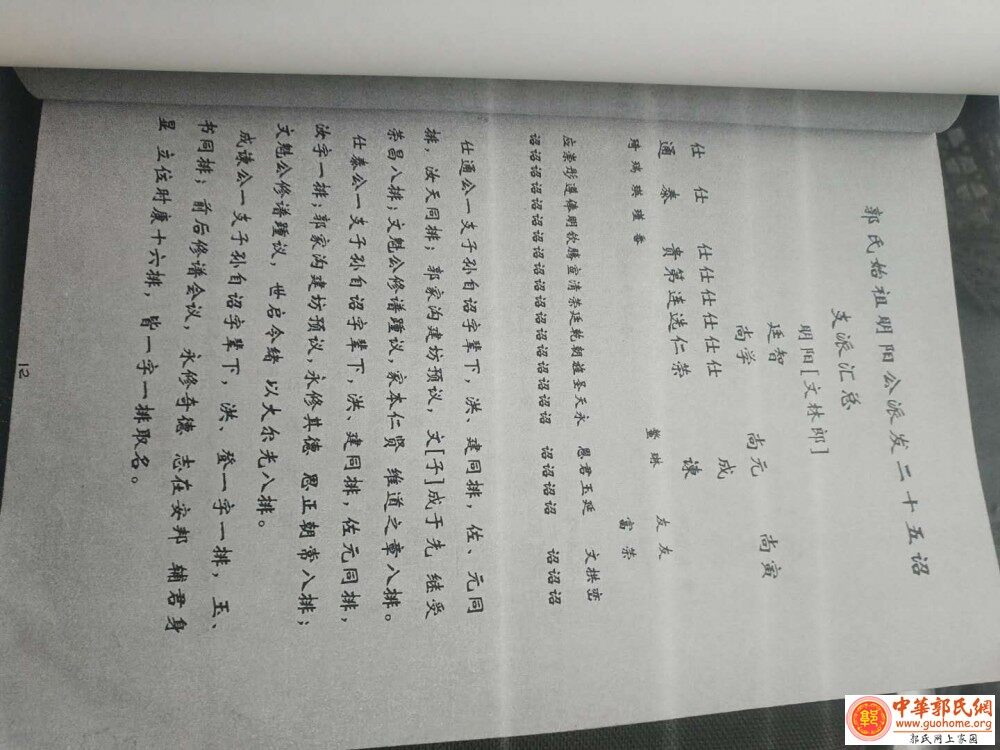 郭氏始祖明阳公派发二十五诏
支派汇总
明阳[文林郎]
廷智
尚学 尚元 尚寅
成
仕 仕 仕仕仕仕仕仕 谏
通 泰 贵第连选仁荣 友友
琦瑀瑛瑾 琳 富荣
应崇彤遵俸明钦腾宣清荣廷乾朝雄圣天永 恩君玉廷 文拱峦
诏诏诏诏诏诏诏诏诏诏诏诏诏诏诏诏诏诏 诏诏诏诏 诏诏诏
仕通公一支子孙自诏字辈下，洪、建同排，佐、元同
排，汝天同排；郭家沟建坊预议，文[子]成于先 继受
荣昌八排；文魁公修谱踵议，家本仁贤 维道之章八排。
仕泰公一支子孙自诏字辈下，洪、建同排，佐元同排，
汝字一排；郭家沟建坊预议，永修其德 恩正朝常八排；
文魁公修谱踵议，世启令绪 以大尔光八排。
成谏公一支子孙自诏字辈下，洪、登一字一排，玉、
书同排；前后修谱会议，永修奇德 志在安邦 辅君身
显 立位时康十六排，皆一字一排取名。
12
中華郭氏網
www.guohome.org
郭氏网上家园